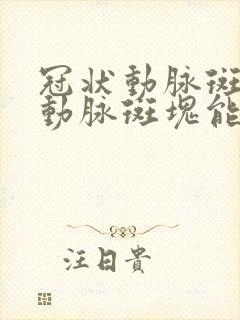 冠狀動脉斑
動脉斑塊能
汪日貴